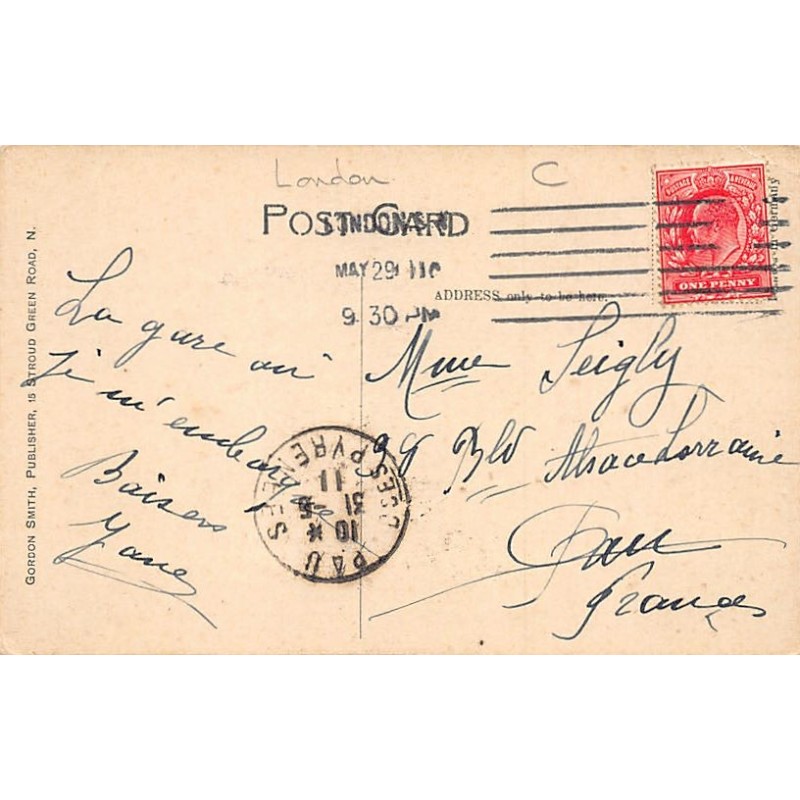 London
C
POST CARD
LONDON S.W
MAY 29 11
9.30 PM
POSTAGE & REVENUE
ONE PENNY
ADDRESS only to be here.
GORDON SMITH, PUBLISHER, 15 STROUD GREEN ROAD, N.
La gare où
je m'embarque
Baisers
Mme Seigly
39 Bld Alsace Lorraine
Pau
France
PAU
BSES PYRENEES
10 * 5
31
11